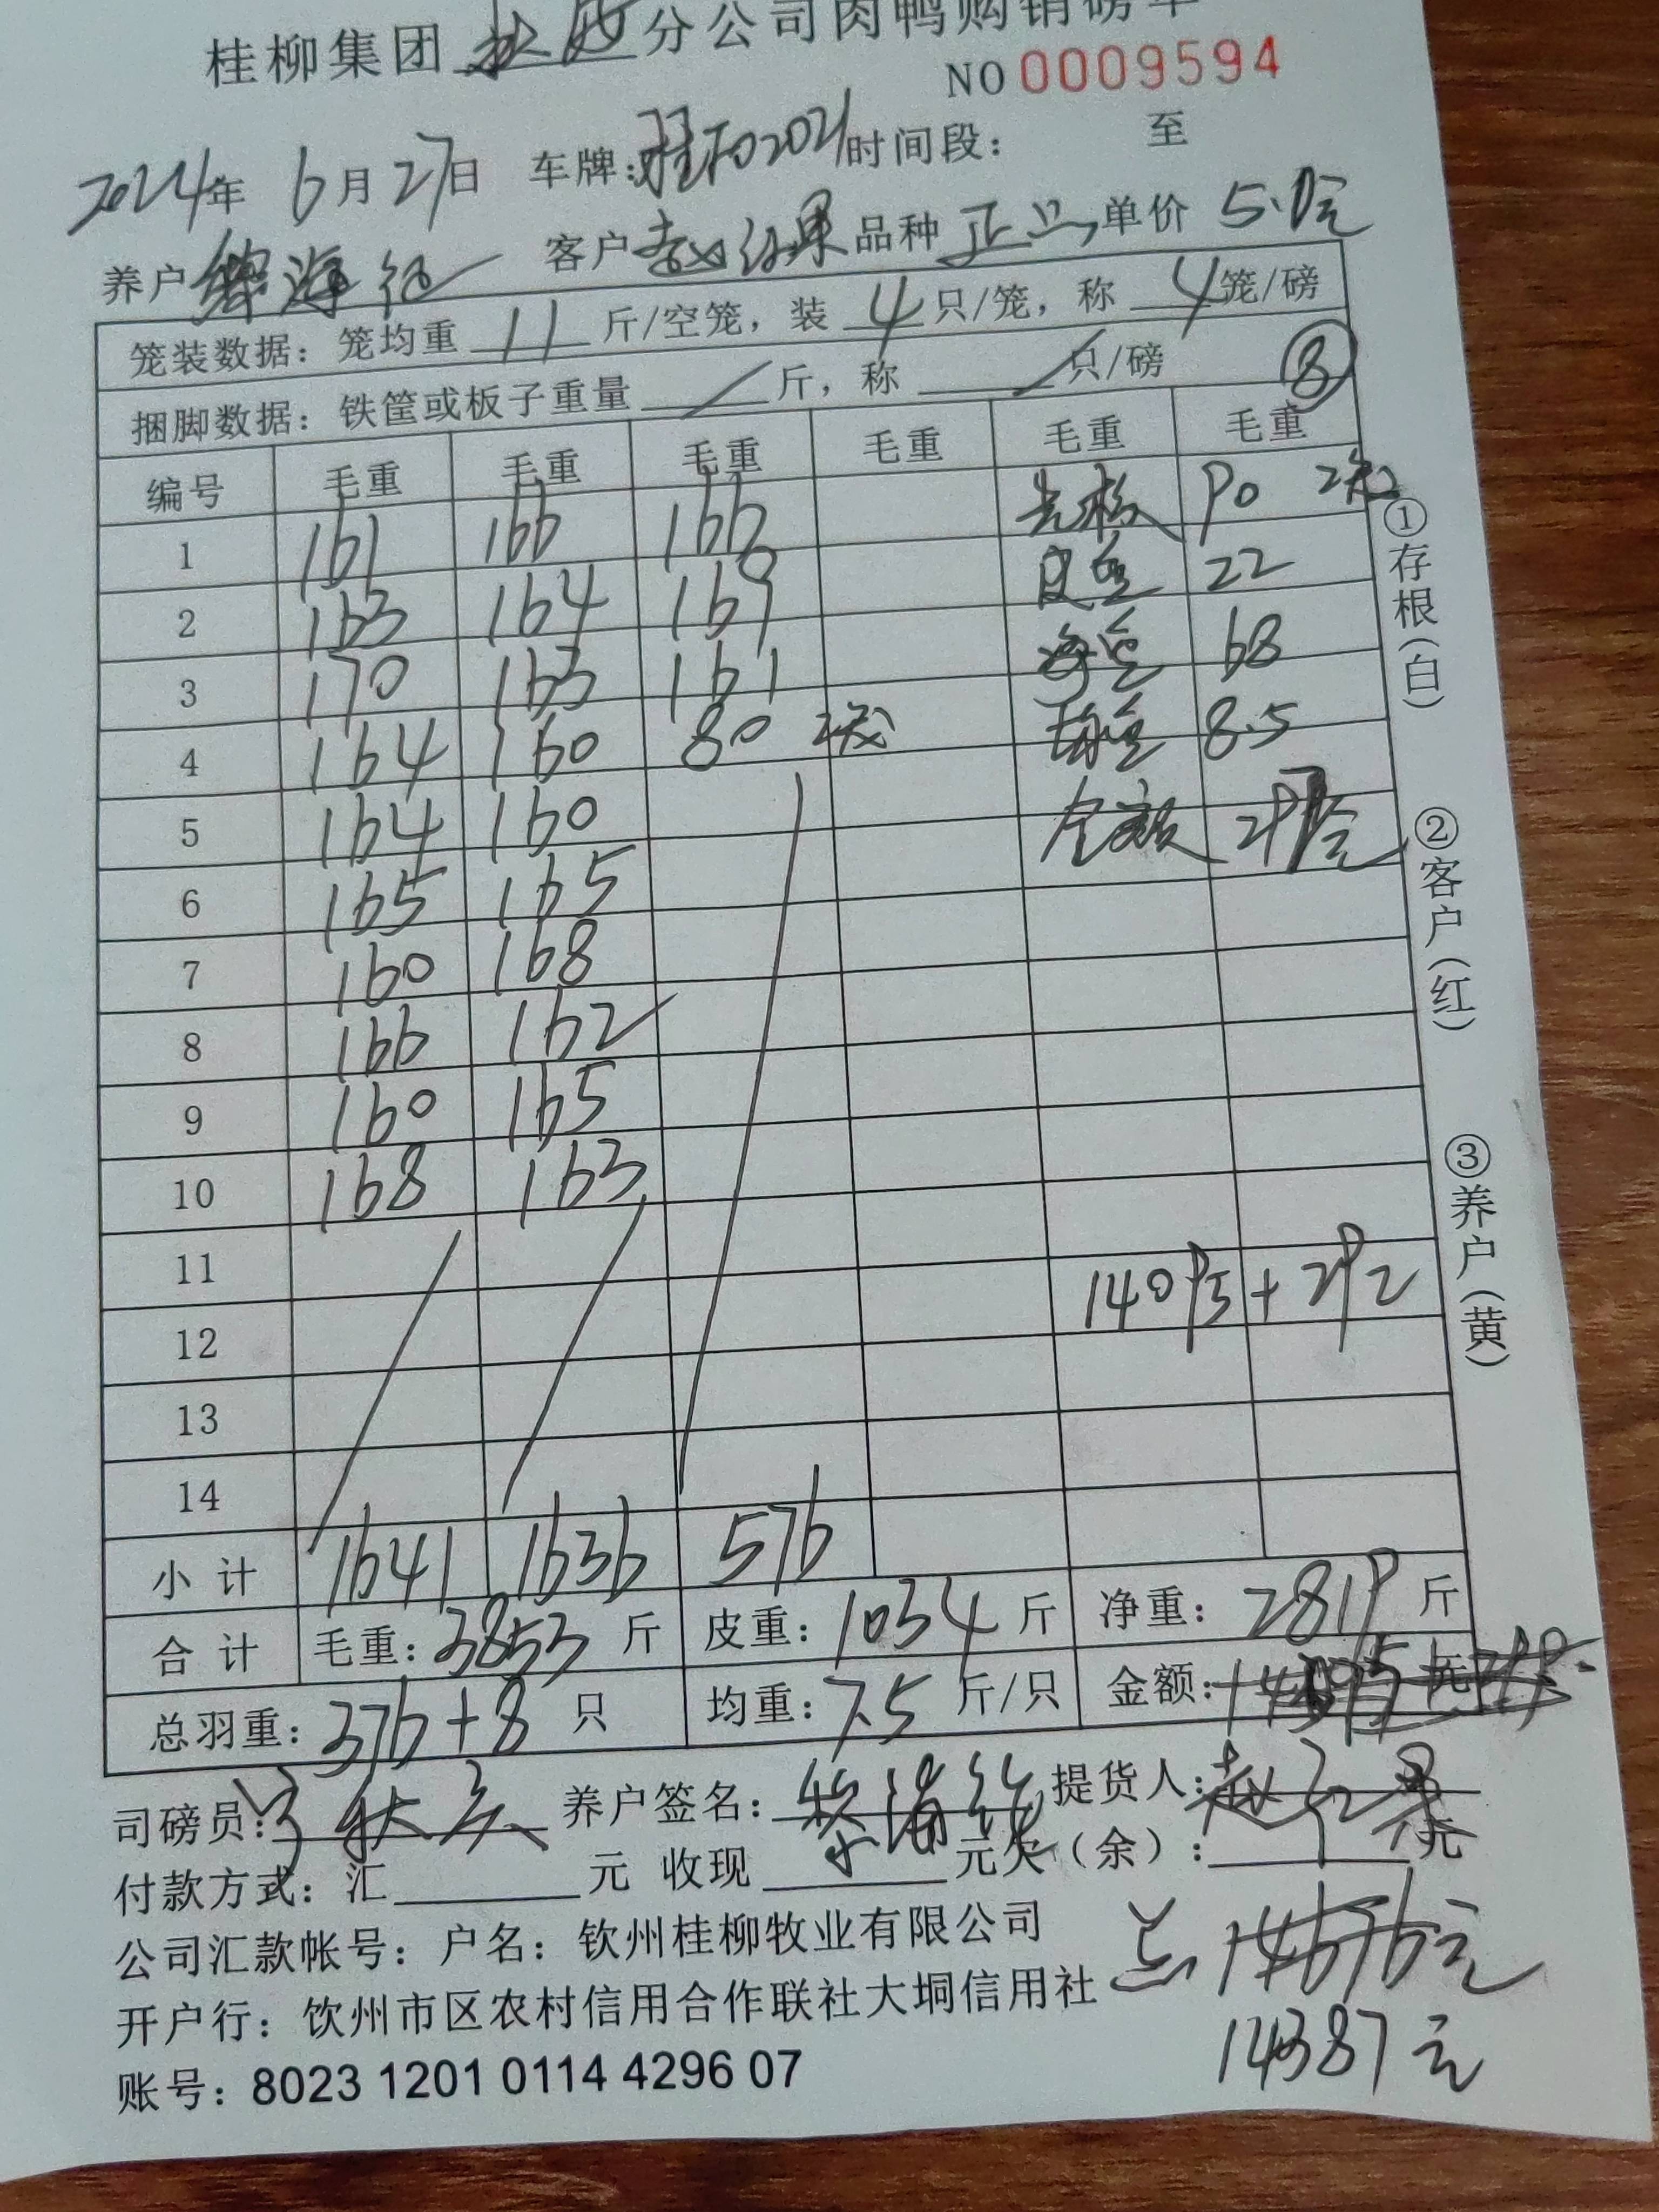 桂柳集团 分公司肉鸭购销磅单
NO 0009594
2024年 6月27日 车牌: 2021 时间段: 至
养户 海 客户 赵红果 品种 正 单价 5.0元
笼装数据: 笼均重 11 斤/空笼, 装 4 只/笼, 称 4 笼/磅
捆脚数据: 铁筐或板子重量 / 斤, 称 / 只/磅 ⑧
编号 毛重 毛重 毛重 毛重 毛重 毛重
1 161 166 166 90 2笼
2 163 164 169 皮重 22
3 170 163 161 净重 68
4 164 160 80 2笼 均重 8.5
5 164 160 金额
6 165 165
7 160 168
8 166 162
9 160 165
10 168 163
11 14095 + 292
12
13
14
小计 1641 1636 576
合计 毛重: 3853 斤 皮重: 1034 斤 净重: 2819 斤
总羽重: 376+8 只 均重: 7.5 斤/只 金额: 14095 元
司磅员: 养户签名: 黎海 提货人: 赵红果
付款方式: 汇 元 收现 元欠(余): 元
公司汇款帐号: 户名: 钦州桂柳牧业有限公司
开户行: 饮州市区农村信用合作联社大垌信用社
账号: 8023 1201 0114 4296 07
总 14676元
14387元
①存根(白)
②客户(红)
③养户(黄)